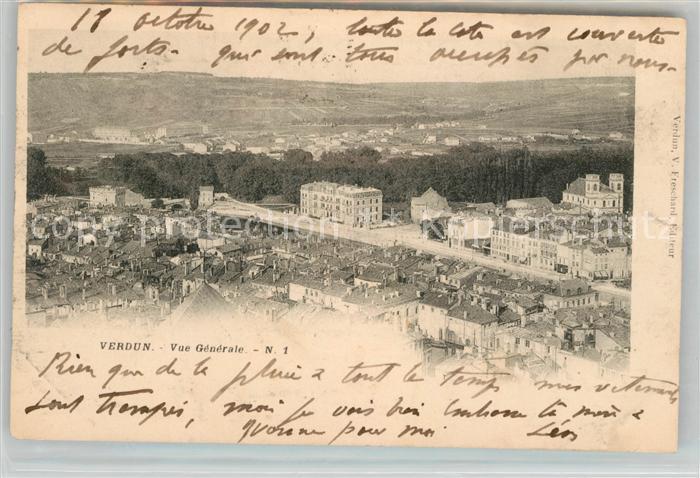 17 octobre 1902, toute la cote est couverte
de forts. que sont tous occupés par nous.
Verdun, V. Freschard, Editeur
VERDUN. - Vue Générale. - N. 1
Rien que de la pluie & tout le temp mes vetements
sont trempés, moi je vais bien Embrasse ta mère &
Yvonne pour moi Léon